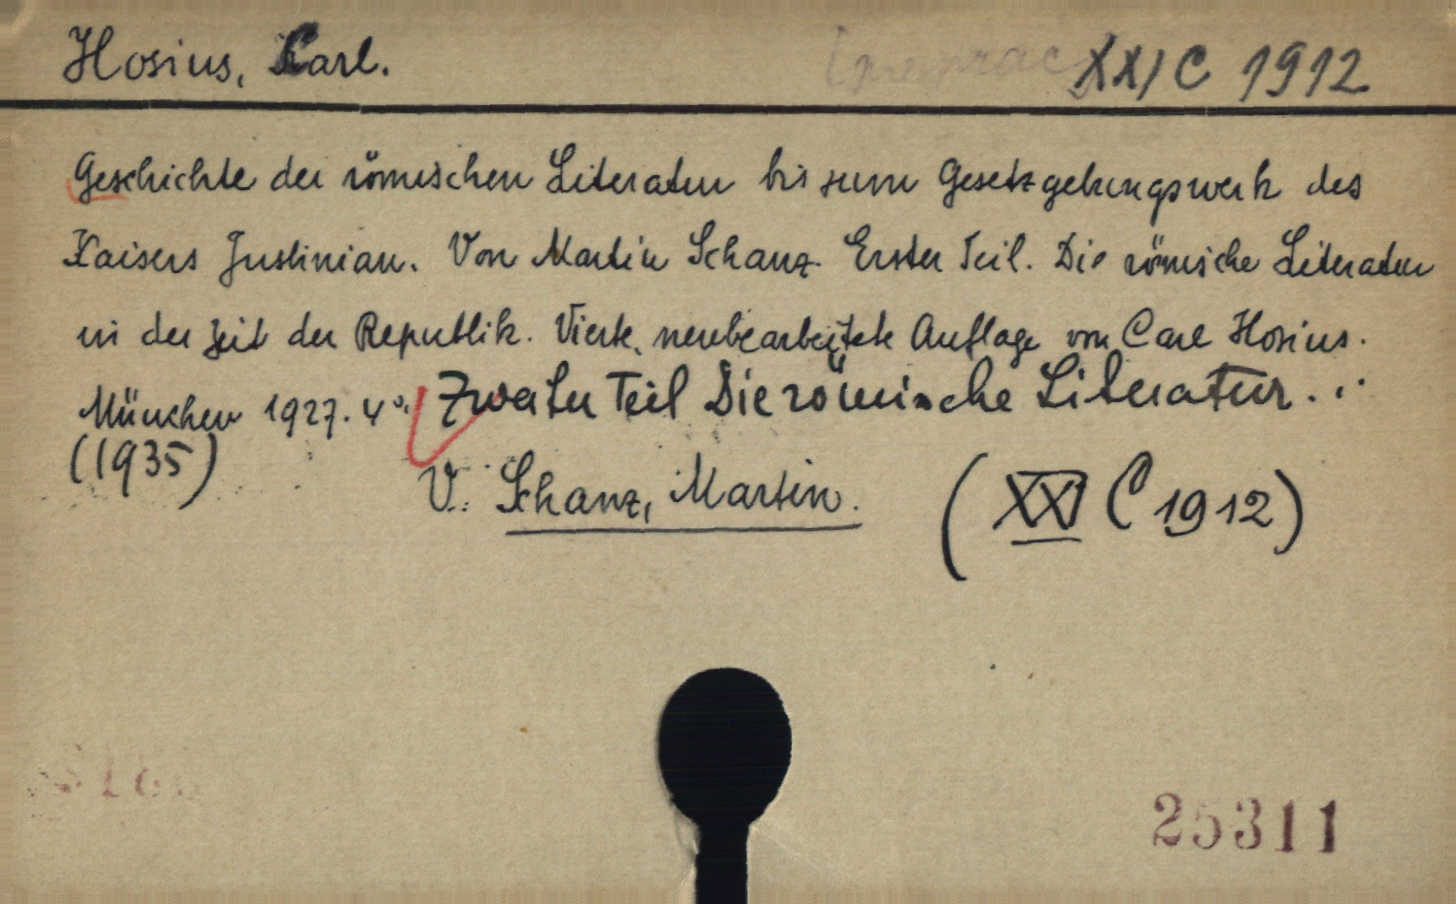 Hosius, Carl. XXI C 1912
Geschichte der römischen Literatur bis zum Gesetzgebungswerk des
Kaisers Justinian. Von Martin Schanz. Erster Teil. Die römische Literatur
in der Zeit der Republik. Vierte, neubearbeitete Auflage von Carl Hosius.
München 1927. 4°. Zweiter Teil Die römische Literatur...
(1935)
V. Schanz, Martin. (XXI C 1912)
25311